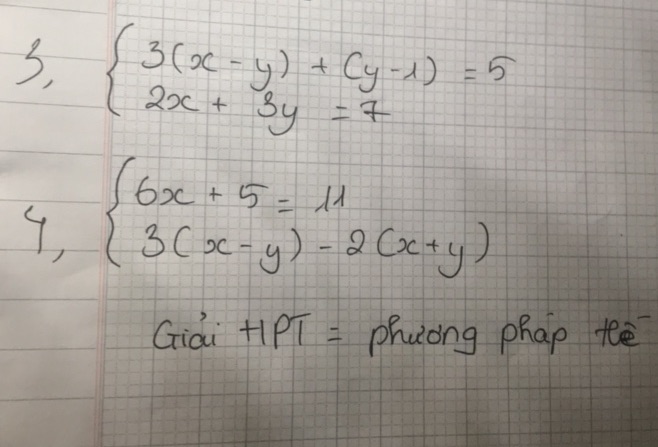 3, { 3(x - y) + (y - 1) = 5
2x + 3y = 7
4, { 6x + 5 = 11
3(x - y) - 2(x + y)
Giải HPT = phương pháp thế